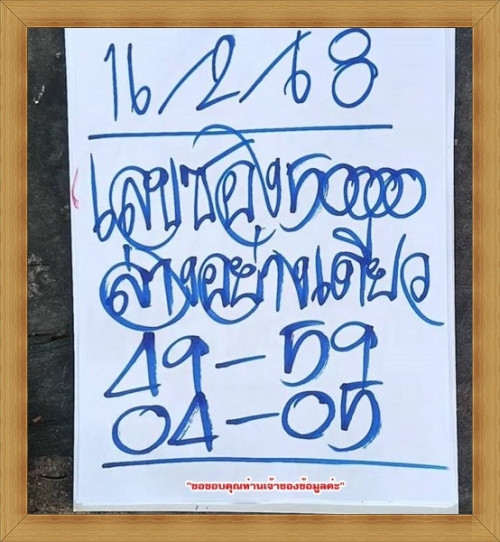 16/2/68
เลขซอง50000
ล่างอย่างเดียว
49-59
04-05
"ขอขอบคุณท่านเจ้าของข้อมูลค่ะ"